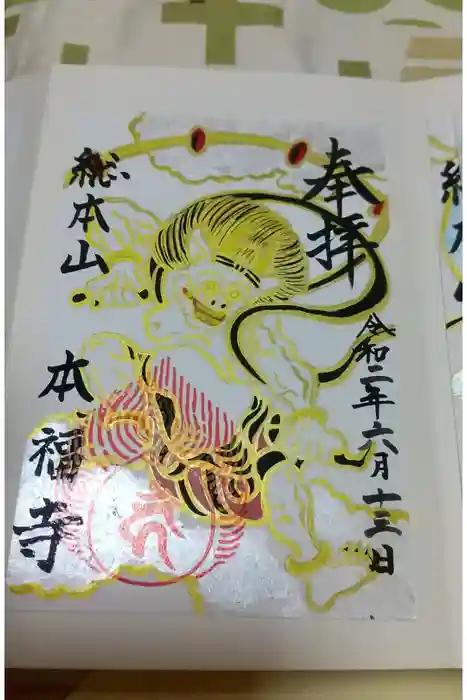 奉拝
令和二年六月十三日
総本山
本福寺